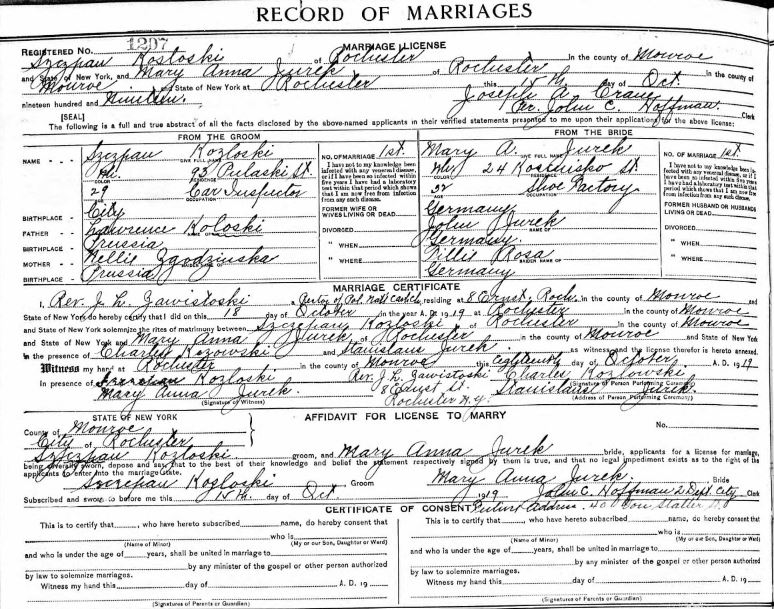 RECORD OF MARRIAGES
REGISTERED No. 1297
MARRIAGE LICENSE
Szczpan Kosloski of Rochester in the county of Monroe
and State of New York, and Mary Anna Jurek of Rochester in the county of
Monroe and State of New York at Rochester this 15th day of Oct
nineteen hundred and Nineteen. Joseph A. Crane
Per. John C. Hoffman. Clerk
[SEAL]
The following is a full and true abstract of all the facts disclosed by the above-named applicants in their verified statements presented to me upon their applications for the above license:
FROM THE GROOM
NAME - - - Szczpau Kozloski No. OF MARRIAGE 1st.
GIVE FULL NAME
Wh. 93 Pulaski St.
RESIDENCE
29 Car Inspector
OCCUPATION
I have not to my knowledge been infected with any venereal disease, or if I have been so infected within five years I have had a laboratory test within that period which shows that I am now free from infection from any such disease.
BIRTHPLACE - City
FORMER WIFE OR WIVES LIVING OR DEAD
FATHER - - Lawrence Koloski
DIVORCED
BIRTHPLACE - Prussia
" WHEN
MOTHER - - Nellie Zgodzinska
MAIDEN NAME OF
" WHERE
BIRTHPLACE - Prussia
FROM THE BRIDE
Mary A. Jurek No. OF MARRIAGE 1st.
GIVE FULL NAME
Wh 24 Kosciusko St.
RESIDENCE
32 Shoe Factory
AGE OCCUPATION
I have not to my knowledge been infected with any venereal disease, or if I have been so infected within five years I have had a laboratory test within that period which shows that I am now free from infection from any such disease.
Germany
FORMER HUSBAND OR HUSBANDS LIVING OR DEAD
John Jurek
NAME OF
DIVORCED
Germany.
" WHEN
Tillie Rosa
MAIDEN NAME OF
" WHERE
Germany
MARRIAGE CERTIFICATE
I, Rev. J. L. Zawistoski a Rector of Pol. Natl Cath Ch residing at 8 Ernst, Roch. in the county of Monroe and
State of New York do hereby certify that I did on this 18 day of October in the year A. D. 1919 at Rochester in the county of Monroe
and State of New York solemnize the rites of matrimony between Szczepan Kozloski of Rochester in the county of Monroe
and State of New York, and Mary Anna Jurek of Rochester in the county of Monroe and State of New York
in the presence of Charles Kozowski and Stanislaus Jurek as witness, and the license therefor is hereto annexed.
Witness my hand at Rochester in the county of Monroe this eighteenth day of October A. D. 1919
In presence of Szczepan Kozloski Rev. J. L. Zawistoski Charles Kozlowski
(Signature of Person Performing Ceremony)
Mary Anna C. Jurek. 8 Ernst St. Stanislaus Jurek.
(Signature of Witness) Rochester N.Y. (Address of Person Performing Ceremony)
STATE OF NEW YORK
AFFIDAVIT FOR LICENSE TO MARRY
County of Monroe No.
City of Rochester
Szczepan Kozloski groom, and Mary Anna Jurek bride, applicants for a license for marriage,
being severally sworn, depose and say, that to the best of their knowledge and belief the statement respectively signed by them is true, and that no legal impediment exists as to the right of the
applicants to enter into the marriage state.
Szczepan Kozloski Groom Mary Anna Jurek. Bride
Subscribed and sworn to before me this 15th. day of Oct. 1919 John C. Hoffman 2 Dept. City
CERTIFICATE OF CONSENT
Future Address. 40 Von Statler St.
This is to certify that, who have hereto subscribed name, do hereby consent that
who is
(Name of Minor) (My or our Son, Daughter or Ward)
and who is under the age of years, shall be united in marriage to
by any minister of the gospel or other person authorized
by law to solemnize marriages.
Witness my hand this day of A. D. 19
(Signatures of Parents or Guardian)
This is to certify that, who have hereto subscribed name, do hereby consent that
who is
(Name of Minor) (My or our Son, Daughter or Ward)
and who is under the age of years, shall be united in marriage to
by any minister of the gospel or other person authorized
by law to solemnize marriages.
Witness my hand this day of A. D. 19
(Signatures of Parents or Guardian)